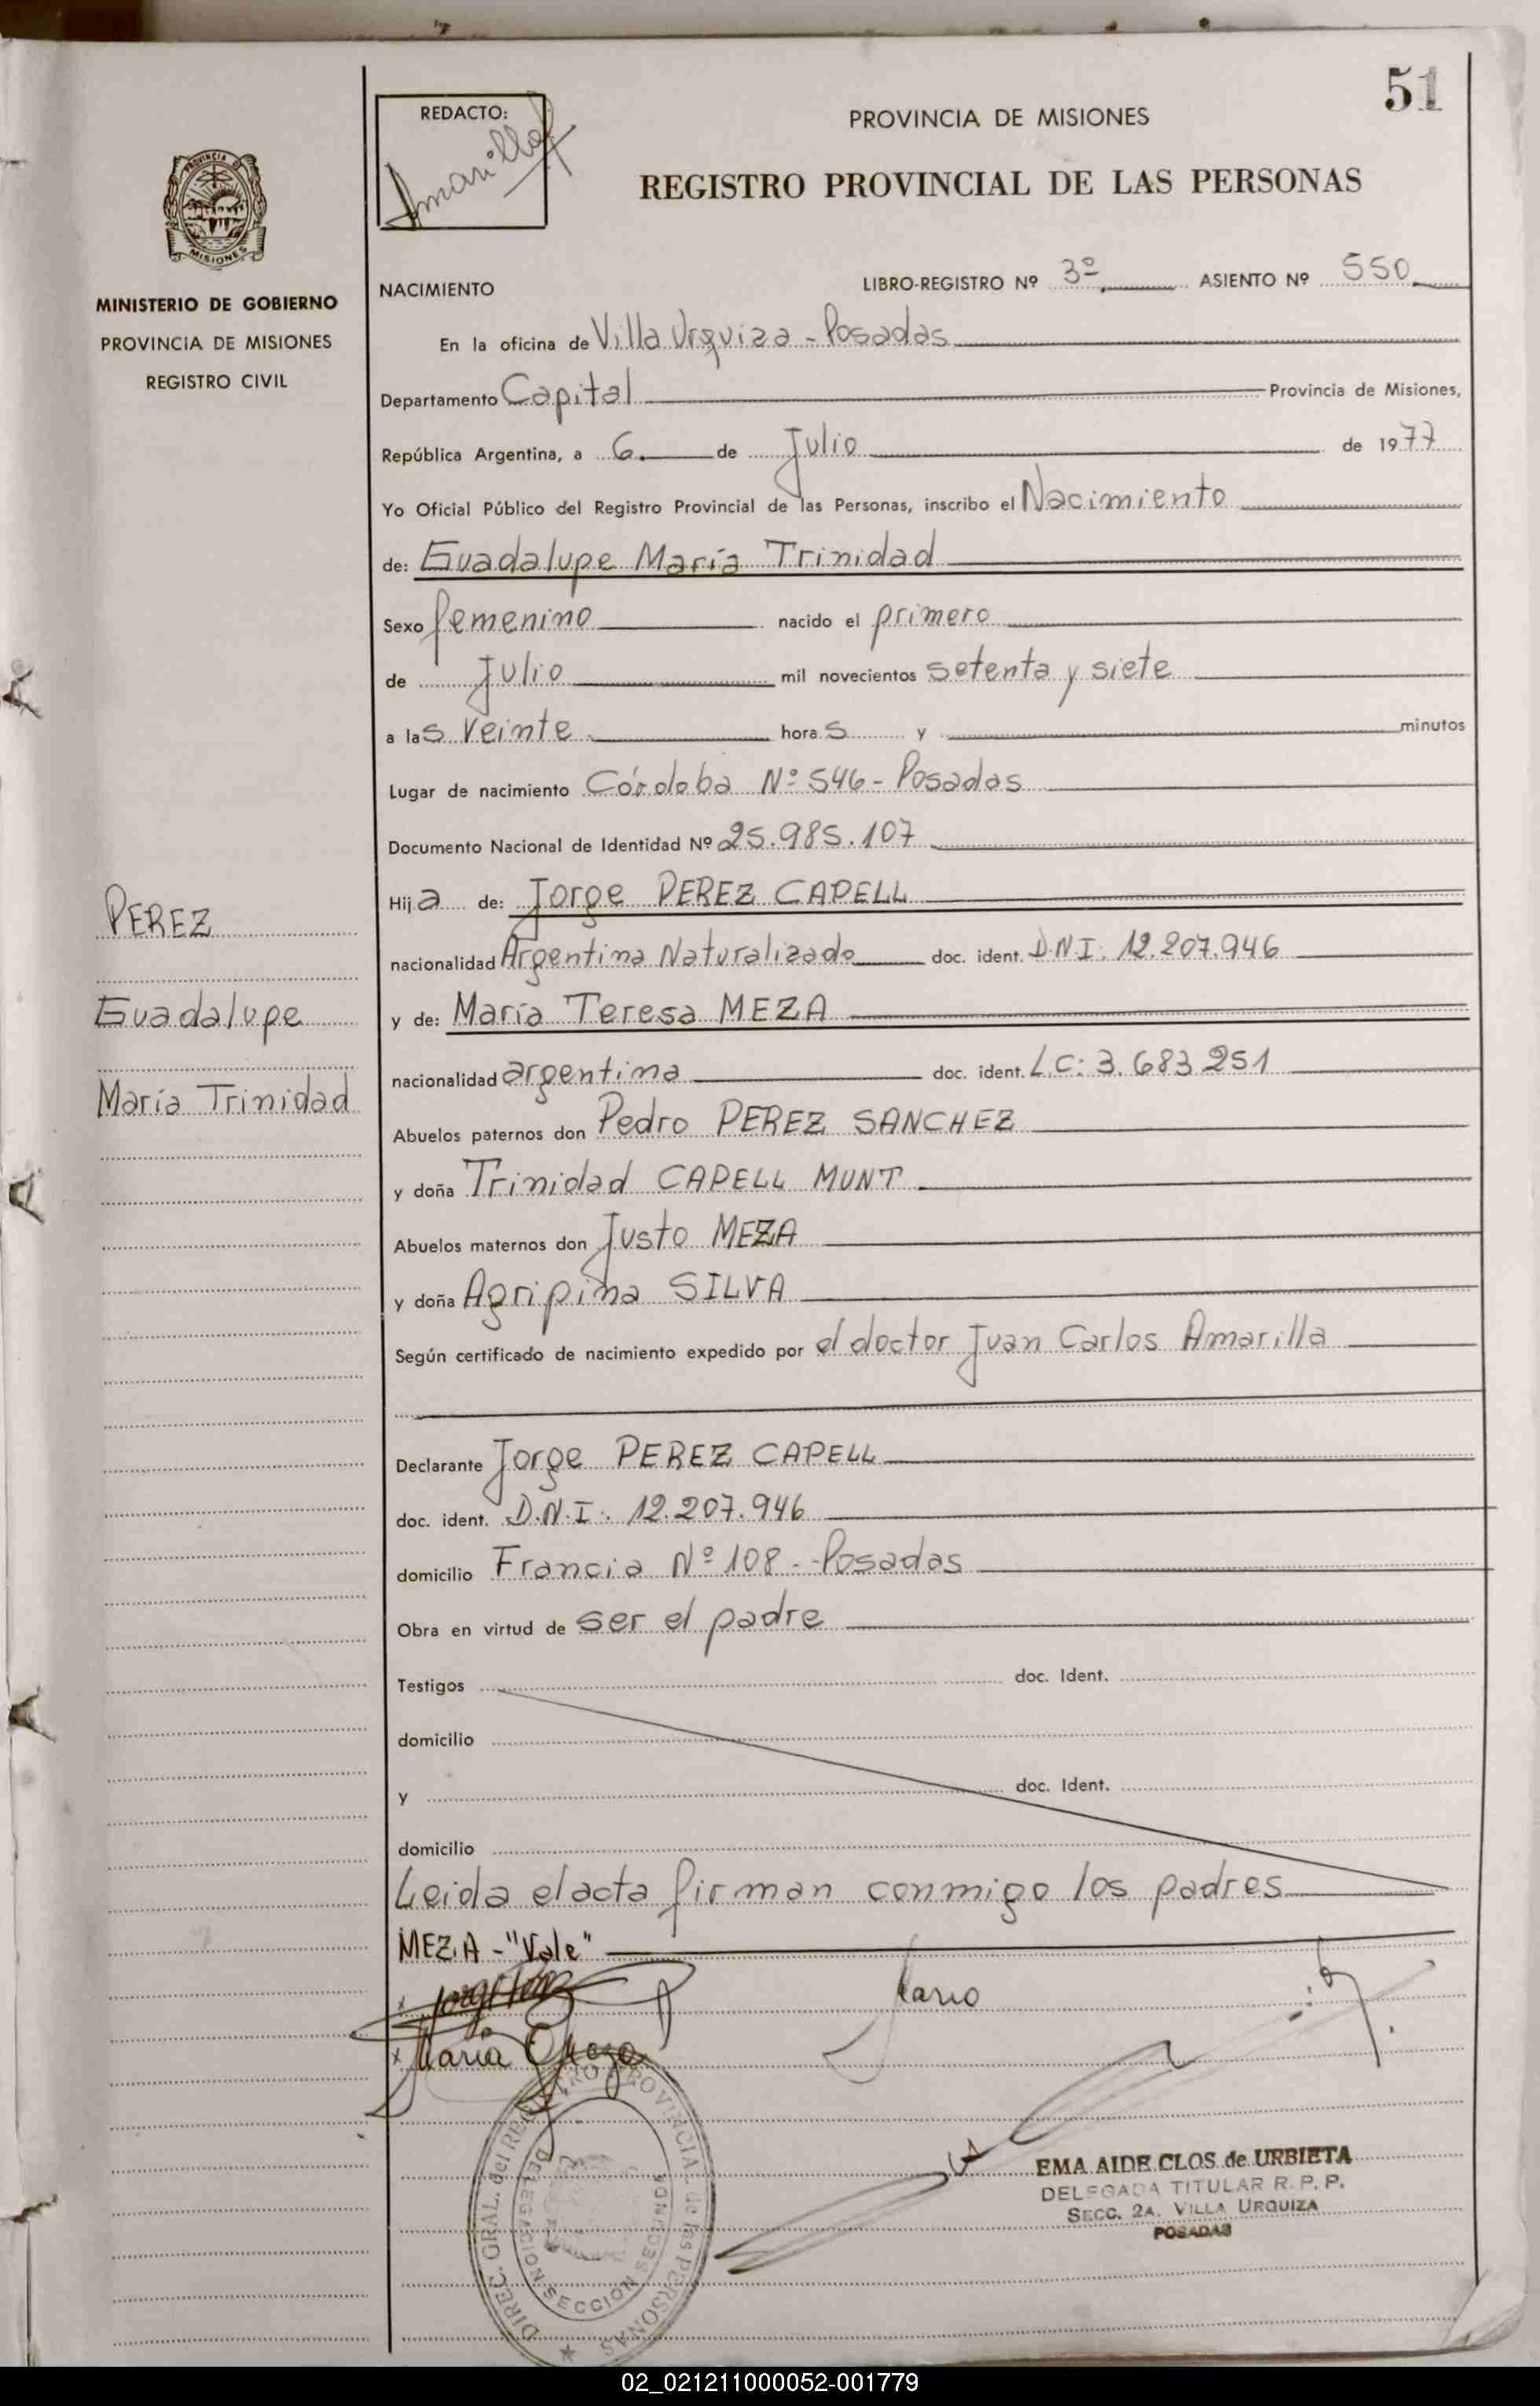 51
REDACTO:
Amarilla
PROVINCIA DE MISIONES
REGISTRO PROVINCIAL DE LAS PERSONAS
PROVINCIA DE
MISIONES
MINISTERIO DE GOBIERNO
PROVINCIA DE MISIONES
REGISTRO CIVIL
NACIMIENTO LIBRO-REGISTRO Nº 3º ASIENTO Nº 550
En la oficina de Villa Urquiza - Posadas
Departamento Capital Provincia de Misiones,
República Argentina, a 6 de Julio de 1977
Yo Oficial Público del Registro Provincial de las Personas, inscribo el Nacimiento
de: Guadalupe María Trinidad
Sexo femenino nacido el primero
de Julio mil novecientos setenta y siete
a las veinte horas y minutos
Lugar de nacimiento Córdoba Nº 546 - Posadas
Documento Nacional de Identidad Nº 25.985.107
Hija de: Jorge PEREZ CAPELL
nacionalidad Argentina Naturalizado doc. ident. D.N.I: 12.207.946
y de: María Teresa MEZA
nacionalidad argentina doc. ident. L.C: 3.683.251
Abuelos paternos don Pedro PEREZ SANCHEZ
y doña Trinidad CAPELL MUNT
Abuelos maternos don Justo MEZA
y doña Agripina SILVA
Según certificado de nacimiento expedido por el doctor Juan Carlos Amarilla
Declarante Jorge PEREZ CAPELL
doc. ident. D.N.I: 12.207.946
domicilio Francia Nº 108 - Posadas
Obra en virtud de ser el padre
Testigos doc. Ident.
domicilio
y doc. Ident.
domicilio
Leida el acta firman conmigo los padres
MEZA - "Vale"
PEREZ
Guadalupe
María Trinidad
María Meza
DIREC. GRAL. del REGISTRO PROVINCIAL de las PERSONAS
EMA AIDE CLOS de URBIETA
DELEGADA TITULAR R. P. P.
SECC. 2A. VILLA URQUIZA
POSADAS
02_021211000052-001779